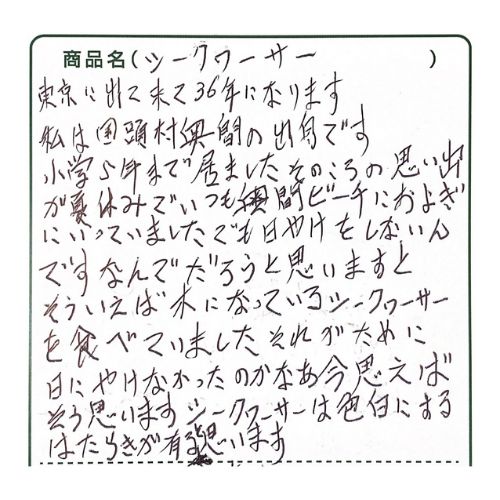 商品名(シークワーサー)
東京に出て来て36年になります
私は国頭村奥間の出身です
小学5年まで居ましたそのころの思い出
が夏休みでいつも奥間ビーチにおよぎ
にいっていましたでも日やけをしないん
ですなんでだろうと思いますと
そういえば木になっているシークワーサー
を食べていましたそれがために
日にやけなかったのかなあ今思えば
そう思いますシークワーサーは色白にする
はたらきが有ると思います